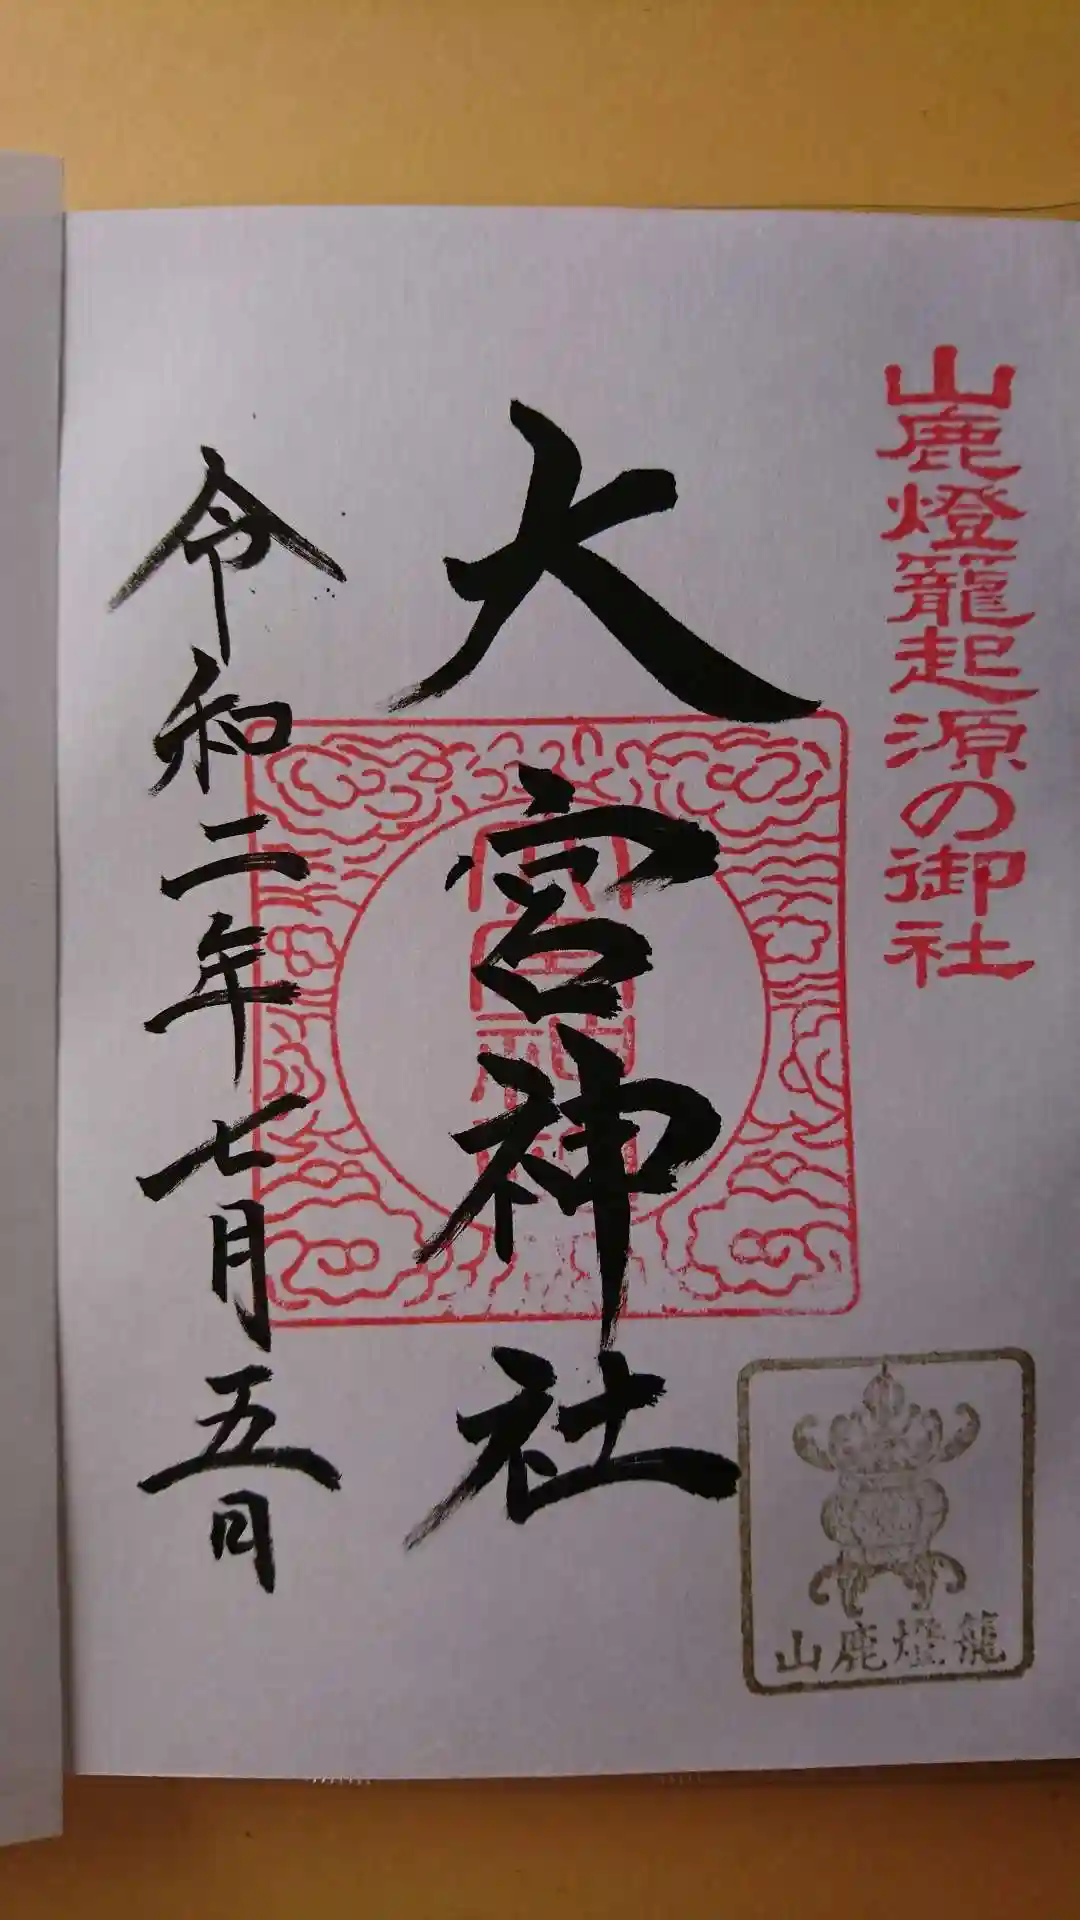 山鹿燈籠起源の御社
大宮神社
令和二年七月五日
山鹿燈籠